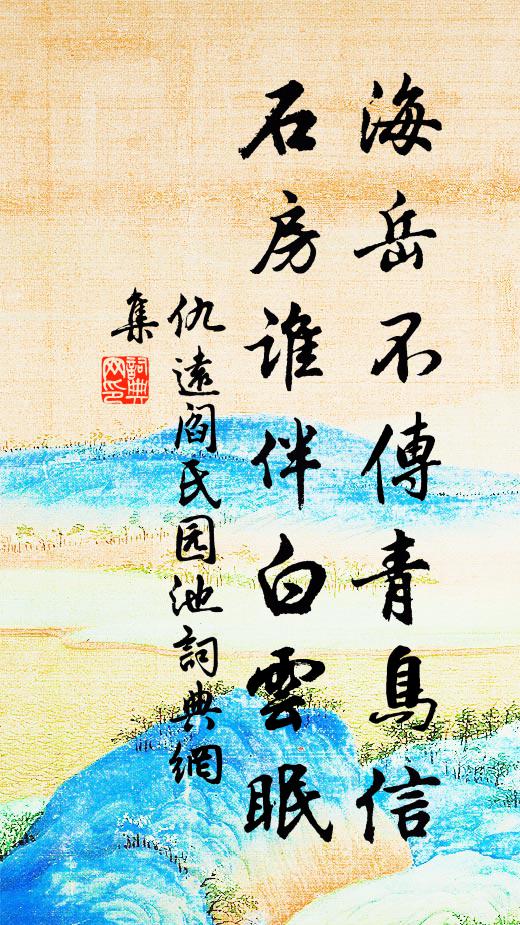 海岳不傳青鳥信
石房誰伴白雲眠
仇遠阎氏园池詞典網
集
詞典網印